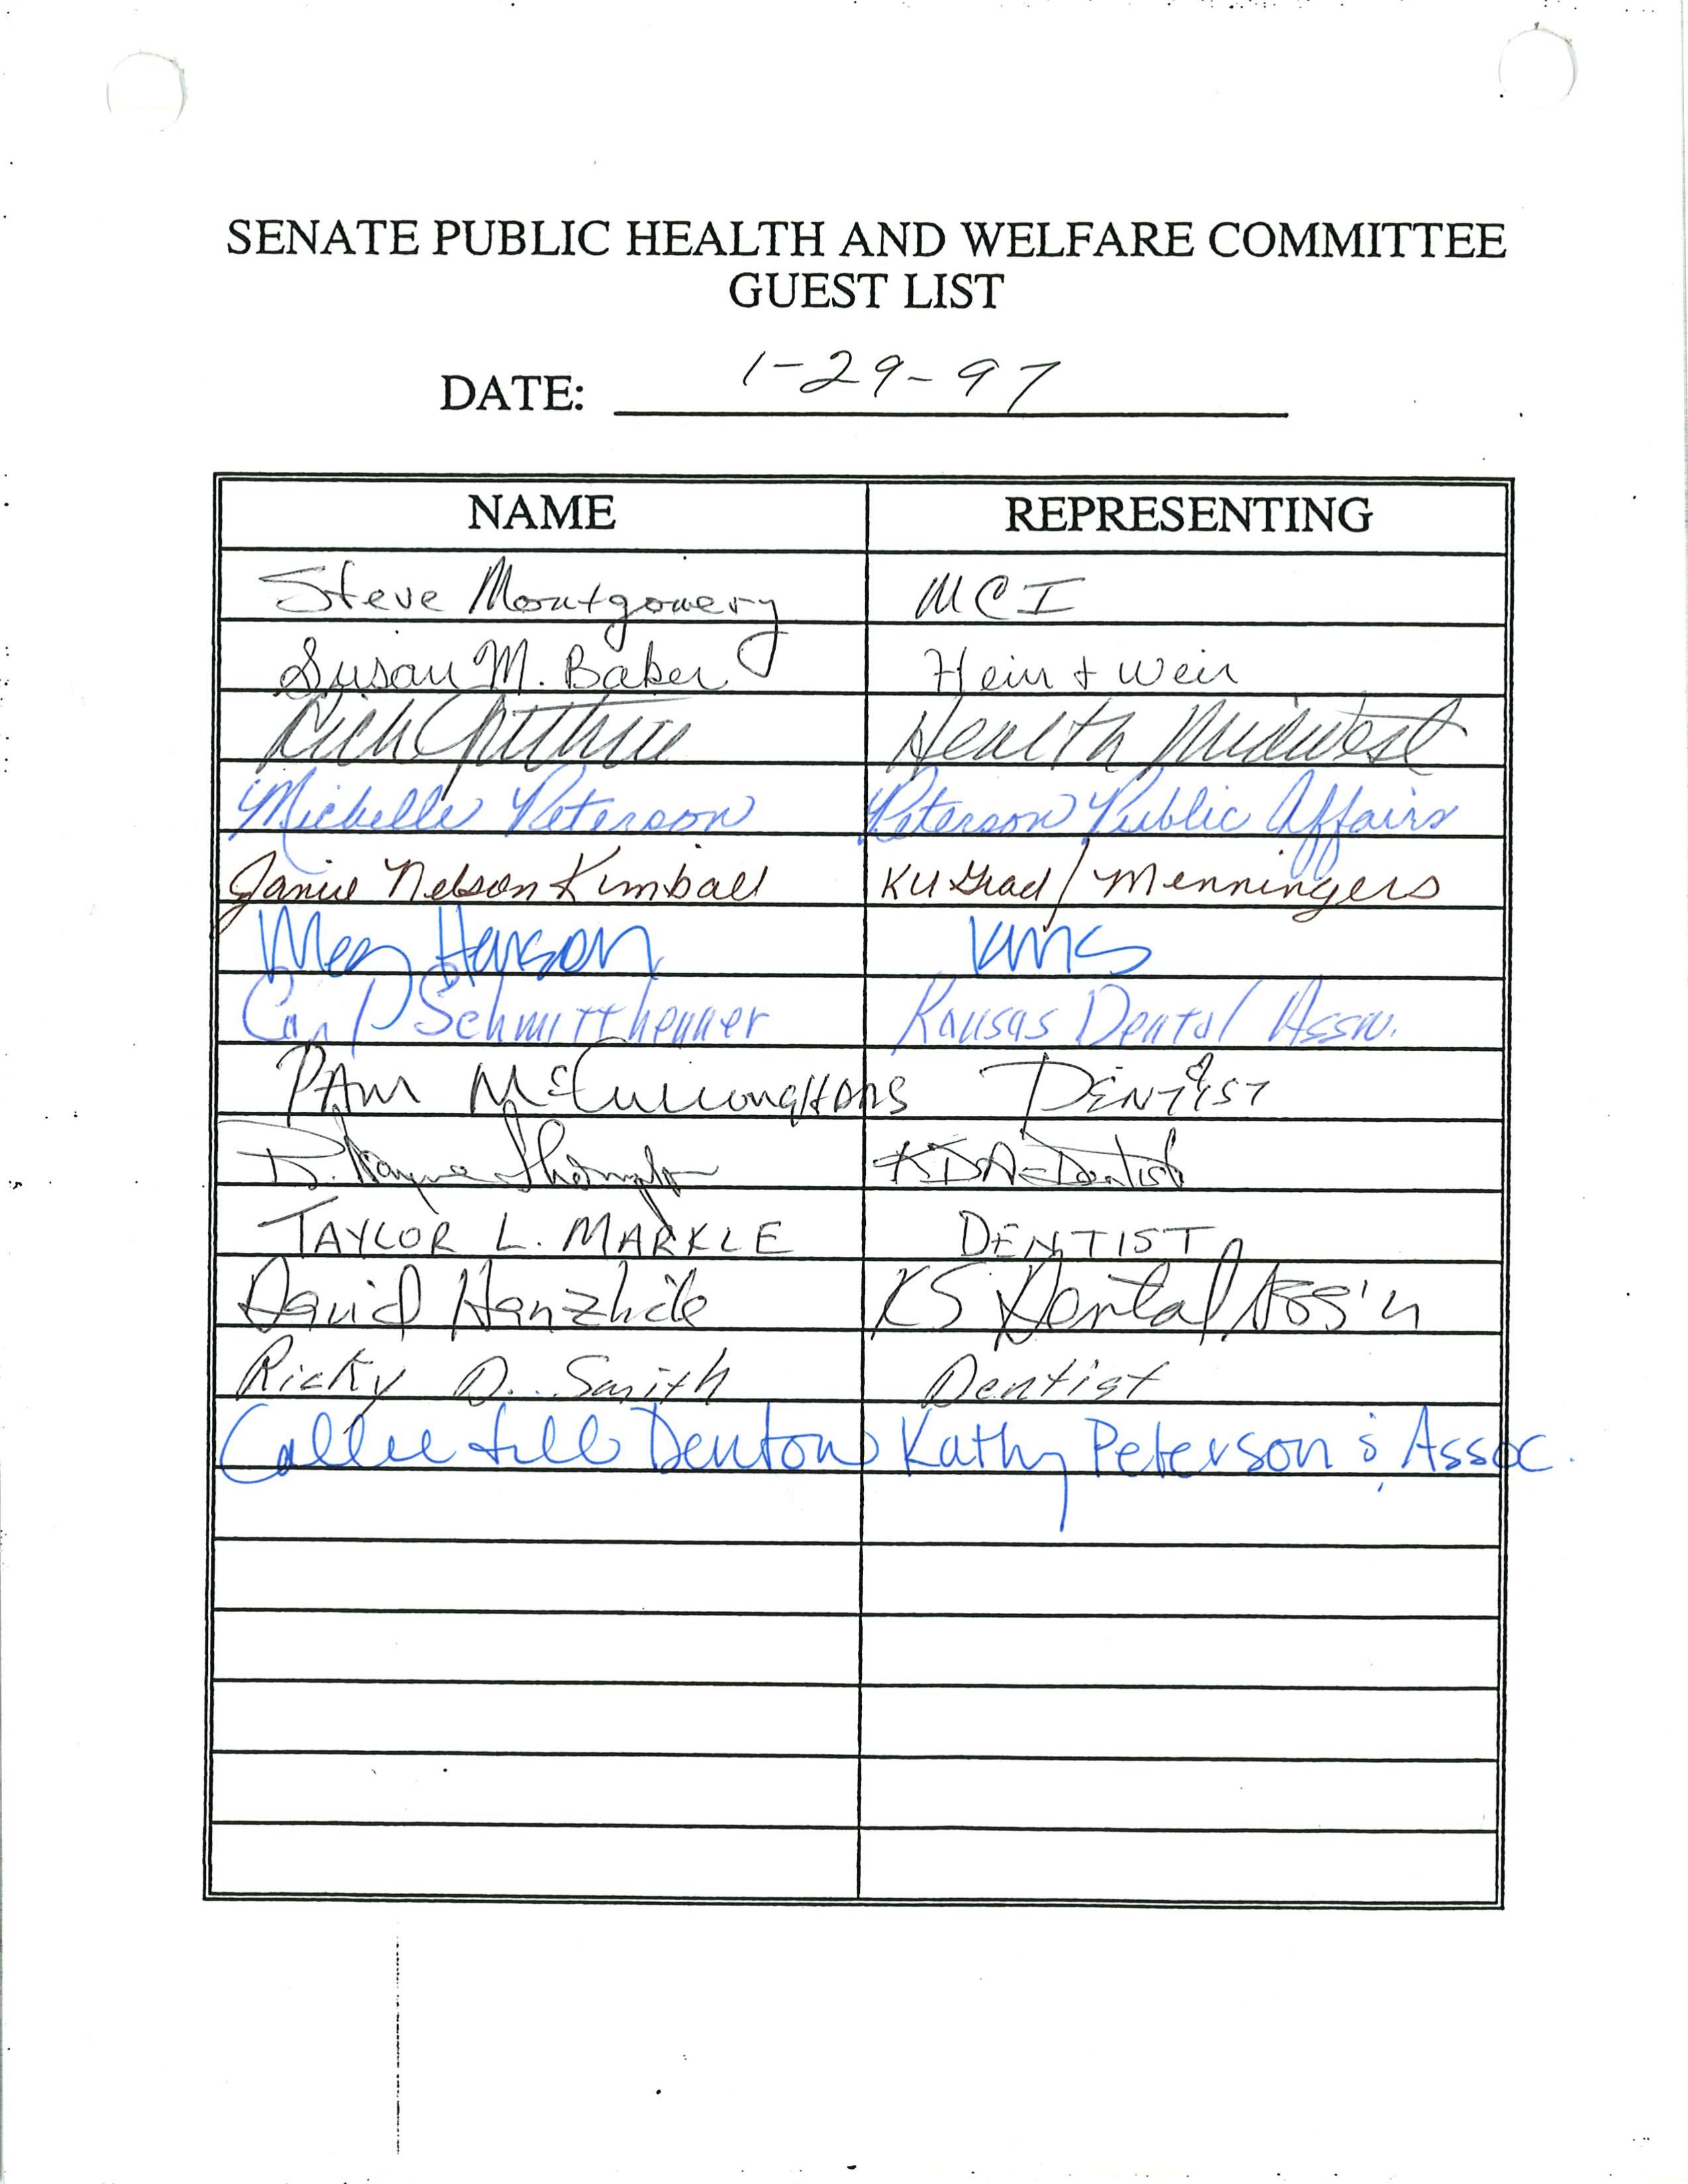 SENATE PUBLIC HEALTH AND WELFARE COMMITTEE
GUEST LIST
DATE: 1-29-97
NAME REPRESENTING
Steve Montgomery MCI
Susan M. Baker Hein + Weir
Rich Guthrie Health Midwest
Michelle Peterson Peterson Public Affairs
Janice Nelson Kimball KU Grad / Menningers
Meg Henson KMS
Carl Schmitthenner Kansas Dental Assn.
PAM DENTIST
KDA-Dentist
TAYLOR L. MARKLE DENTIST
David Hanzlick KS Dental Ass'n
Ricky D. Smith Dentist
Callie Jill Denton Kathy Peterson & Assoc.